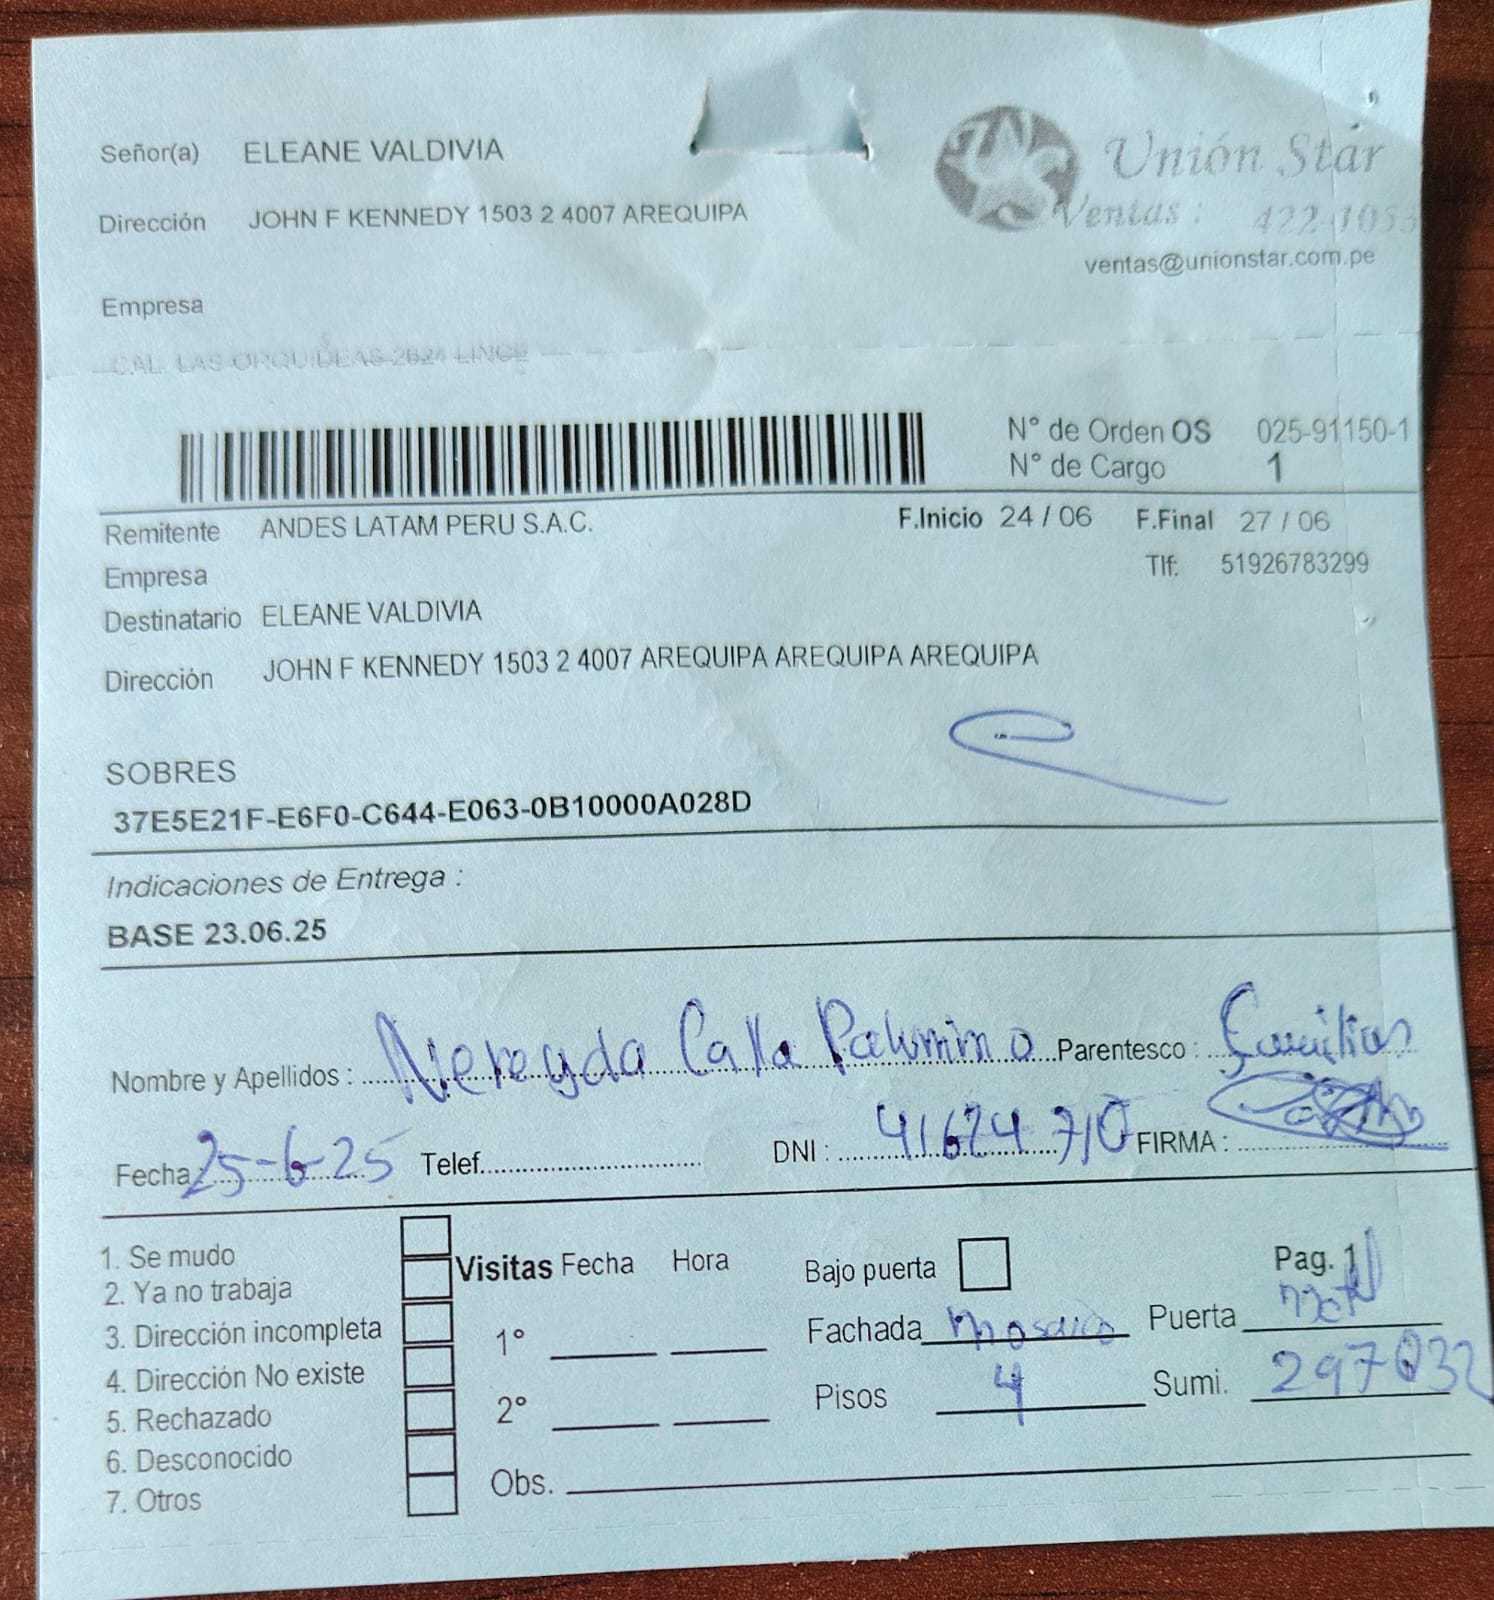 Señor(a) ELEANE VALDIVIA
Unión Star
Dirección JOHN F KENNEDY 1503 2 4007 AREQUIPA
Ventas : 422-1053
ventas@unionstar.com.pe
Empresa
CAL. LAS ORQUIDEAS 2624 LINCE
N° de Orden OS 025-91150-1
N° de Cargo 1
Remitente ANDES LATAM PERU S.A.C. F.Inicio 24 / 06 F.Final 27 / 06
Empresa Tlf: 51926783299
Destinatario ELEANE VALDIVIA
Dirección JOHN F KENNEDY 1503 2 4007 AREQUIPA AREQUIPA AREQUIPA
SOBRES
37E5E21F-E6F0-C644-E063-0B10000A028D
Indicaciones de Entrega :
BASE 23.06.25
Nombre y Apellidos : Nereyda Calla Palomino Parentesco : Familiar
Fecha 25-6-25 Telef. DNI : 41624710 FIRMA :
1. Se mudo
2. Ya no trabaja
3. Dirección incompleta
4. Dirección No existe
5. Rechazado
6. Desconocido
7. Otros
Visitas Fecha Hora
1°
2°
Obs.
Bajo puerta Pag. 1
Fachada mosaico Puerta
Pisos 4 Sumi. 297032